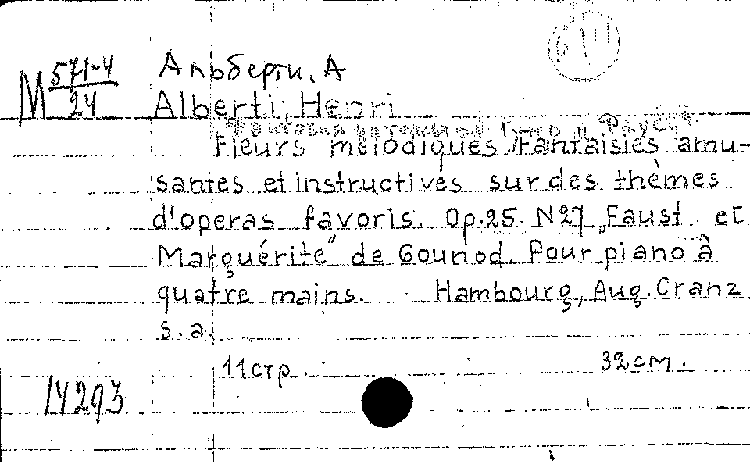 М 571-4
24
Альберти, А
Alberti, Henri
Fleurs mélodiques. Fantaisies amu-
santes et instructives sur des thèmes
d'operas favoris. Op. 25. N27 „Faust et
Marguérite" de Gounod. Pour piano à
quatre mains. Hambourg, Aug. Cranz
s. a.
11 стр. 32 см.
14293